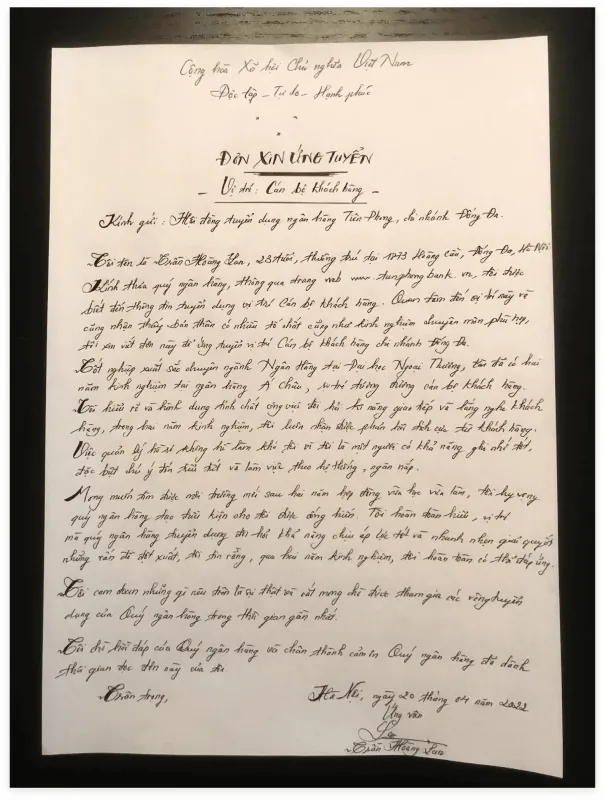 Cộng hòa Xã hội Chủ nghĩa Việt Nam
Độc lập - Tự do - Hạnh phúc
ĐƠN XIN ỨNG TUYỂN
- Vị trí: Cán bộ khách hàng -
Kính gửi: Hội đồng tuyển dụng ngân hàng Tiên Phong, chi nhánh Đống Đa.
Tôi tên là Trần Hoàng Lan, 23 tuổi, thường trú tại Hoàng Cầu, Đống Đa, Hà Nội
Kính thưa quý ngân hàng, thông qua trang web www. vn, tôi được
biết đến thông tin tuyển dụng vị trí Cán bộ khách hàng. Quan tâm đến vị trí này và
cũng nhận thấy bản thân có nhiều tố chất cũng như kinh nghiệm chuyên môn phù hợp,
tôi xin viết đơn này để ứng tuyển vị trí Cán bộ khách hàng chi nhánh Đống Đa.
Tốt nghiệp xuất sắc chuyên ngành Ngân Hàng tại Đại học Ngoại Thương, tôi đã có hai
năm kinh nghiệm tại ngân hàng Á Châu, vị trí tương đương cán bộ khách hàng.
Tôi hiểu rõ và hình dung tính chất công việc đòi hỏi kỹ năng giao tiếp và lắng nghe khách
hàng, trong hai năm kinh nghiệm, tôi luôn nhận được phản hồi tích cực từ khách hàng.
Việc quản lý hồ sơ không hề làm khó tôi vì tôi là một người có khả năng ghi nhớ tốt,
đặc biệt chú ý đến tiểu tiết và làm việc theo hệ thống, ngăn nắp.
Mong muốn tìm được môi trường mới sau hai năm hợp đồng vừa học vừa làm, tôi hy vọng
quý ngân hàng tạo điều kiện cho tôi được cống hiến. Tôi hoàn toàn hiểu, vị trí
mà quý ngân hàng tuyển dụng đòi hỏi khả năng chịu áp lực tốt và nhanh nhẹn giải quyết
những vấn đề đột xuất, tôi tin rằng, qua hai năm kinh nghiệm, tôi hoàn toàn có thể đáp ứng.
Tôi cam đoan những gì nêu trên là sự thật và rất mong chờ được tham gia các vòng tuyển
dụng của Quý ngân hàng trong thời gian gần nhất.
Tôi chờ hồi đáp của Quý ngân hàng và chân thành cảm ơn Quý ngân hàng đã dành
thời gian đọc đơn này của tôi
Trân trọng,
Hà Nội, ngày 20 tháng 04 năm 2022
Ứng viên
Trần Hoàng Lan